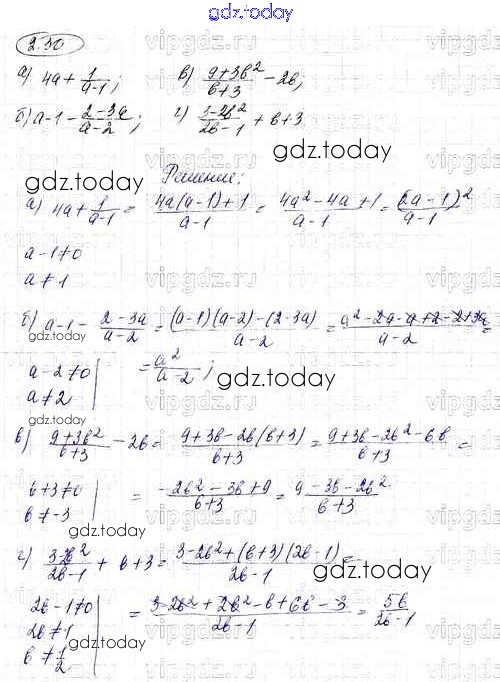 gdz.today
2.30
а) 4a + 1/(a-1); в) (9+3b²)/(b+3) - 2b;
б) a-1 - (2-3a)/(a-2); г) (3-2b²)/(2b-1) + b+3
gdz.today
Решение:
gdz.today
а) 4a + 1/(a-1) = (4a(a-1)+1)/(a-1) = (4a²-4a+1)/(a-1) = (2a-1)²/(a-1)
a-1≠0
a≠1
gdz.today
б) a-1 - (2-3a)/(a-2) = ((a-1)(a-2)-(2-3a))/(a-2) = (a²-2a-a+2-2+3a)/(a-2) =
a-2≠0 = a²/(a-2);
a≠2
gdz.today
gdz.today
в) (9+3b²)/(b+3) - 2b = (9+3b-2b(b+3))/(b+3) = (9+3b-2b²-6b)/(b+3) =
b+3≠0 = (-2b²-3b+9)/(b+3) = (9-3b-2b²)/(b+3)
b≠-3
gdz.today
г) (3-2b²)/(2b-1) + b+3 = (3-2b²+(b+3)(2b-1))/(2b-1) =
gdz.today
2b-1≠0 = (3-2b²+2b²-b+6b-3)/(2b-1) = 5b/(2b-1)
2b≠1
gdz.today
b≠1/2
vipgdz.ru